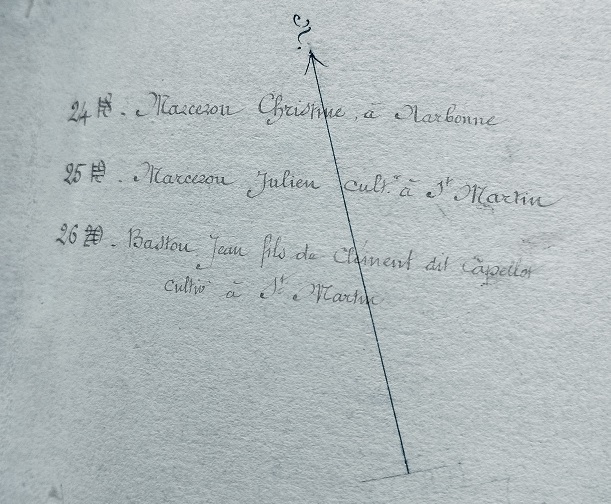 ?
24 . Marcerou Christine, à Narbonne
25 . Marcerou Julien cultr à St Martin
26 . Bastou Jean fils de Clément dit Capellot
cultivr à St Martin